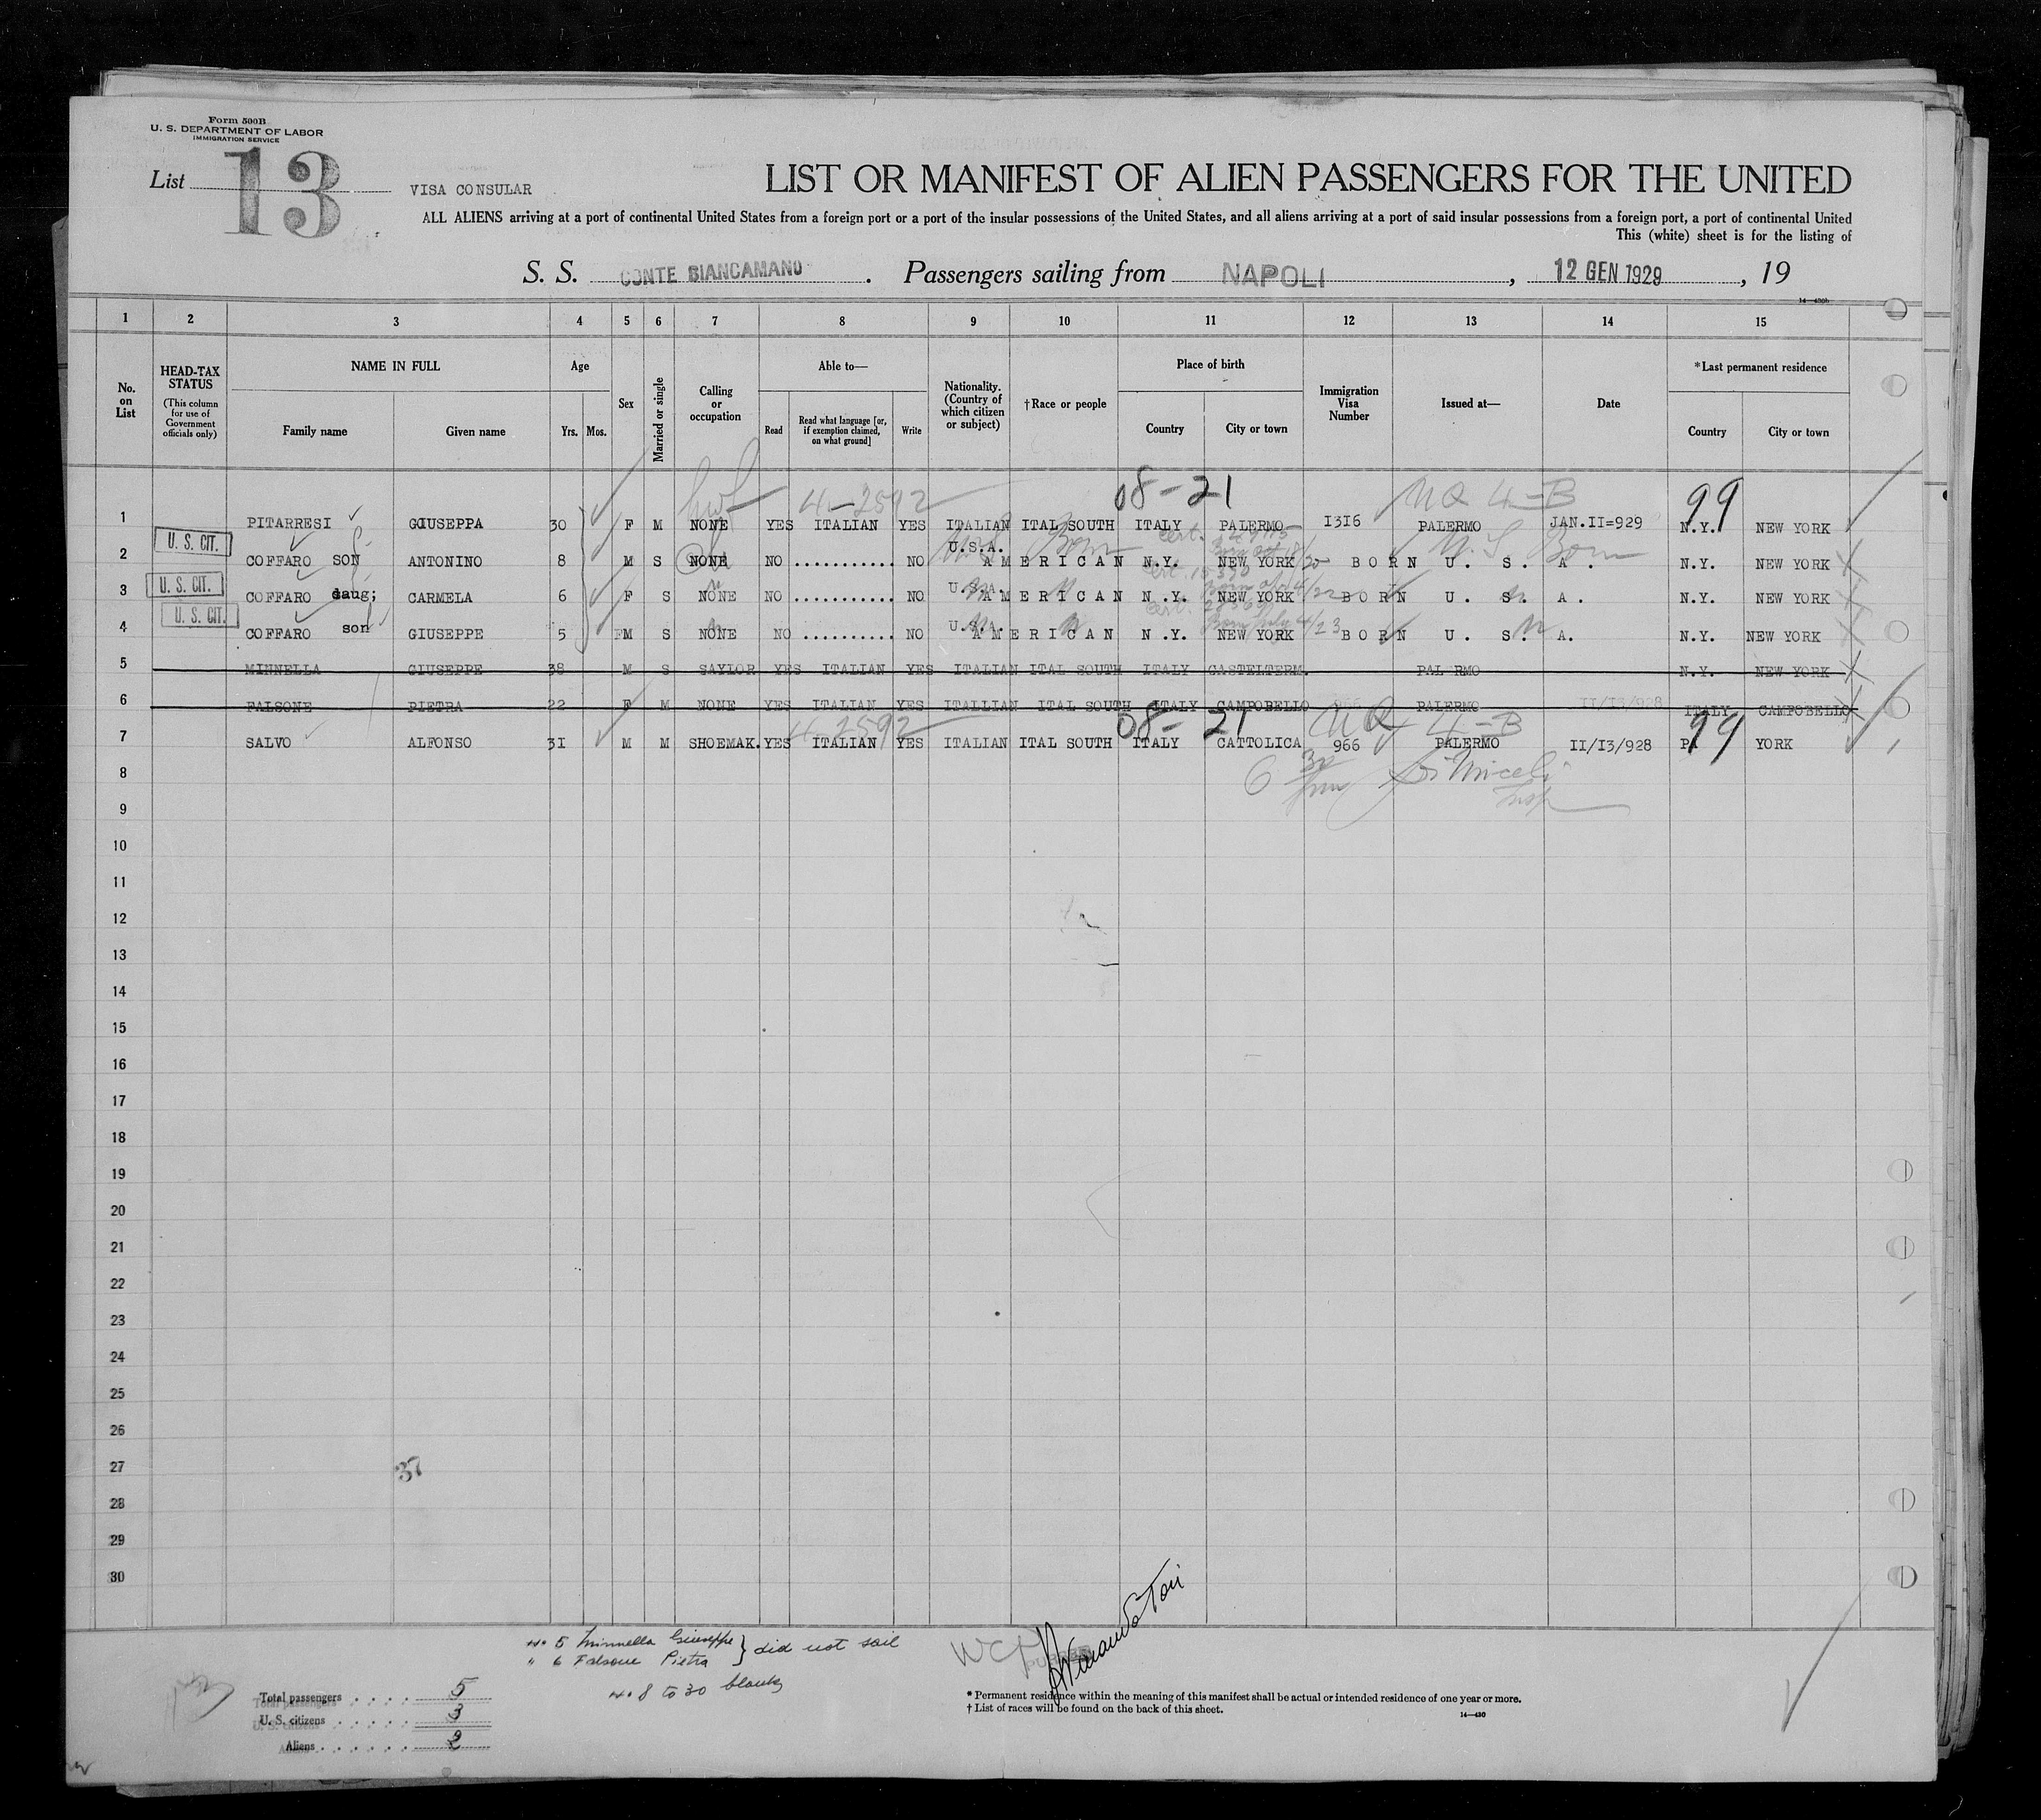 Form 500B
U. S. DEPARTMENT OF LABOR
IMMIGRATION SERVICE
List 13
VISA CONSULAR
LIST OR MANIFEST OF ALIEN PASSENGERS FOR THE UNITED
ALL ALIENS arriving at a port of continental United States from a foreign port or a port of the insular possessions of the United States, and all aliens arriving at a port of said insular possessions from a foreign port, a port of continental United
This (white) sheet is for the listing of
S. S. CONTE BIANCAMANO. Passengers sailing from NAPOLI, 12 GEN 1929, 19
1 2 3 4 5 6 7 8 9 10 11 12 13 14 15
No. on List
HEAD-TAX STATUS
(This column for use of Government officials only)
NAME IN FULL
Family name
Given name
Age
Yrs. Mos.
Sex
Married or single
Calling or occupation
Able to—
Read
Read what language [or, if exemption claimed, on what ground]
Write
Nationality. (Country of which citizen or subject)
†Race or people
Place of birth
Country
City or town
Immigration Visa Number
Issued at—
Date
*Last permanent residence
Country
City or town
4-2592 08-21 NQ 4-B 99
1 PITARRESI GIUSEPPA 30 F M NONE YES ITALIAN YES ITALIAN ITAL SOUTH ITALY PALERMO 1316 PALERMO JAN.II=929 N.Y. NEW YORK
U. S. Born
2 U. S. CIT. COFFARO SON ANTONINO 8 M S NONE NO ........... NO U.S.A. AMERICAN N.Y. NEW YORK BORN U. S. A. N.Y. NEW YORK
3 U. S. CIT. COFFARO daug; CARMELA 6 F S NONE NO ........... NO U.S.A. AMERICAN N.Y. NEW YORK BORN U. S. A. N.Y. NEW YORK
4 U. S. CIT. COFFARO son GIUSEPPE 5 M S NONE NO .......... NO U.S.A. AMERICAN N.Y. NEW YORK BORN U. S. A. N.Y. NEW YORK
5 MINNELLA GIUSEPPE 38 M S SAYLOR YES ITALIAN YES ITALIAN ITAL SOUTH ITALY CASTELTERM. PAL RMO N.Y. NEW YORK
6 FALSONE PIETRA 22 F M NONE YES ITALIAN YES ITALLIAN ITAL SOUTH ITALY CAMPOBELLO 966 PALERMO II/I3/928 ITALY CAMPOBELLO
4-2592 08-21 NQ 4-B 99
7 SALVO ALFONSO 31 M M SHOEMAK. YES ITALIAN YES ITALIAN ITAL SOUTH ITALY CATTOLICA 966 PALERMO II/I3/928 YORK
8
9
10
11
12
13
14
15
16
17
18
19
20
21
22
23
24
25
26
27 37
28
29
30
No 5 Minnella Giuseppe } did not sail
" 6 Falsone Pietra
No 8 to 30 blanks
Total passengers . . . . 5
U. S. citizens . . . . . 3
Aliens . . . . . . 2
* Permanent residence within the meaning of this manifest shall be actual or intended residence of one year or more.
† List of races will be found on the back of this sheet.
14—430